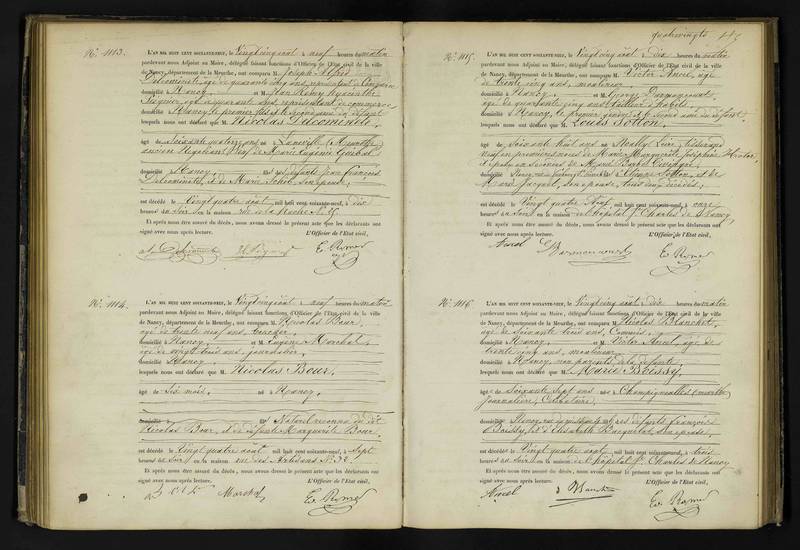 quatrevingts
N.º 1113.
L'AN MIL HUIT CENT SOIXANTE-NEUF, le Vingtcinq août à neuf heures du matin
pardevant nous Adjoint au Maire, délégué faisant fonctions d'Officier de l'Etat civil de la ville
de Nancy, département de la Meurthe, ont comparu M. Joseph Alfred
Delcominète, âgé de quarante cinq ans,
domicilié à Nancy et M. Jean Remy Hyacinthe
âgé de quarante ans représentant de commerce
domicilié à Nancy le premier fils et le second ami du défunt
lesquels nous ont déclaré que M. Nicolas Delcominète,
âgé de Soixante quatorze ans né à Lunéville (Meurthe)
ancien Négociant Veuf de Marie Eugénie
domicilié à Nancy fils des défunts Jean François
Delcominète, et de Marie son épouse,
est décédé le Vingt quatre août mil huit cent soixante-neuf, à dix
heures du Soir en la maison rue de la
Et après nous être assuré du décès, nous avons dressé le présent acte que les déclarants ont
signé avec nous après lecture. L'Officier de l'Etat civil,
N.º 1114.
L'AN MIL HUIT CENT SOIXANTE-NEUF, le Vingtcinq août à neuf heures du matin
pardevant nous Adjoint au Maire, délégué faisant fonctions d'Officier de l'Etat civil de la ville
de Nancy, département de la Meurthe, ont comparu M. Nicolas Bour,
âgé de trente neuf ans,
domicilié à Nancy, et M. Eugène Marchal,
âgé de vingt trois ans, journalier,
domicilié à Nancy,
lesquels nous ont déclaré que M. Nicolas Bour,
âgé de six mois, né à Nancy,
fils Naturel reconnu du dit
Nicolas Bour, et de défunte Marguerite Bour,
est décédé le Vingt quatre août mil huit cent soixante-neuf, à Sept
heures du Soir en la maison rue des Artisans N.º 32
Et après nous être assuré du décès, nous avons dressé le présent acte que les déclarants ont
signé avec nous après lecture. L'Officier de l'Etat civil,
Marchal
N.º 1115.
L'AN MIL HUIT CENT SOIXANTE-NEUF, le Vingtcinq août à dix heures du matin
pardevant nous Adjoint au Maire, délégué faisant fonctions d'Officier de l'Etat civil de la ville
de Nancy, département de la Meurthe, ont comparu M. Victor Ancel, âgé
de trente cinq ans,
domicilié à Nancy, et M. George
âgé de quarante cinq ans
domicilié à Nancy, le premier et le second ami du défunt
lesquels nous ont déclaré que M. Louis Sotton,
âgé de Soixante huit ans né à
veuf en premières noces de Marie Marguerite Joséphine
et époux en secondes de Marie Barbe
domicilié à Nancy, fils d'Etienne Sotton, et de
son épouse, tous deux décédés,
est décédé le Vingt quatre Août mil huit cent soixante-neuf, à onze
heures du Soir en la maison de l'hôpital S.t Charles de Nancy,
Et après nous être assuré du décès, nous avons dressé le présent acte que les déclarants ont
signé avec nous après lecture. L'Officier de l'Etat civil,
Ancel
N.º 1116.
L'AN MIL HUIT CENT SOIXANTE-NEUF, le Vingtcinq août à dix heures du matin
pardevant nous Adjoint au Maire, délégué faisant fonctions d'Officier de l'Etat civil de la ville
de Nancy, département de la Meurthe, ont comparu M. Nicolas Blanchot,
âgé de Soixante trois ans,
domicilié à Nancy, et M. Victor Ancel, âgé de
trente cinq ans,
domicilié à Nancy, non parents de la défunte
lesquels nous ont déclaré que M. Marie Boissy,
âgée de Soixante Sept ans née à Champigneulles (Meurthe)
journalière, Célibataire,
domiciliée à Nancy, fille des défunts François
Boissy, et d'Elisabeth son épouse,
est décédée le Vingt quatre août mil huit cent soixante-neuf, à trois
heures du Soir en la maison de l'hôpital S.t Charles de Nancy
Et après nous être assuré du décès, nous avons dressé le présent acte que les déclarants ont
signé avec nous après lecture. L'Officier de l'Etat civil,
Ancel